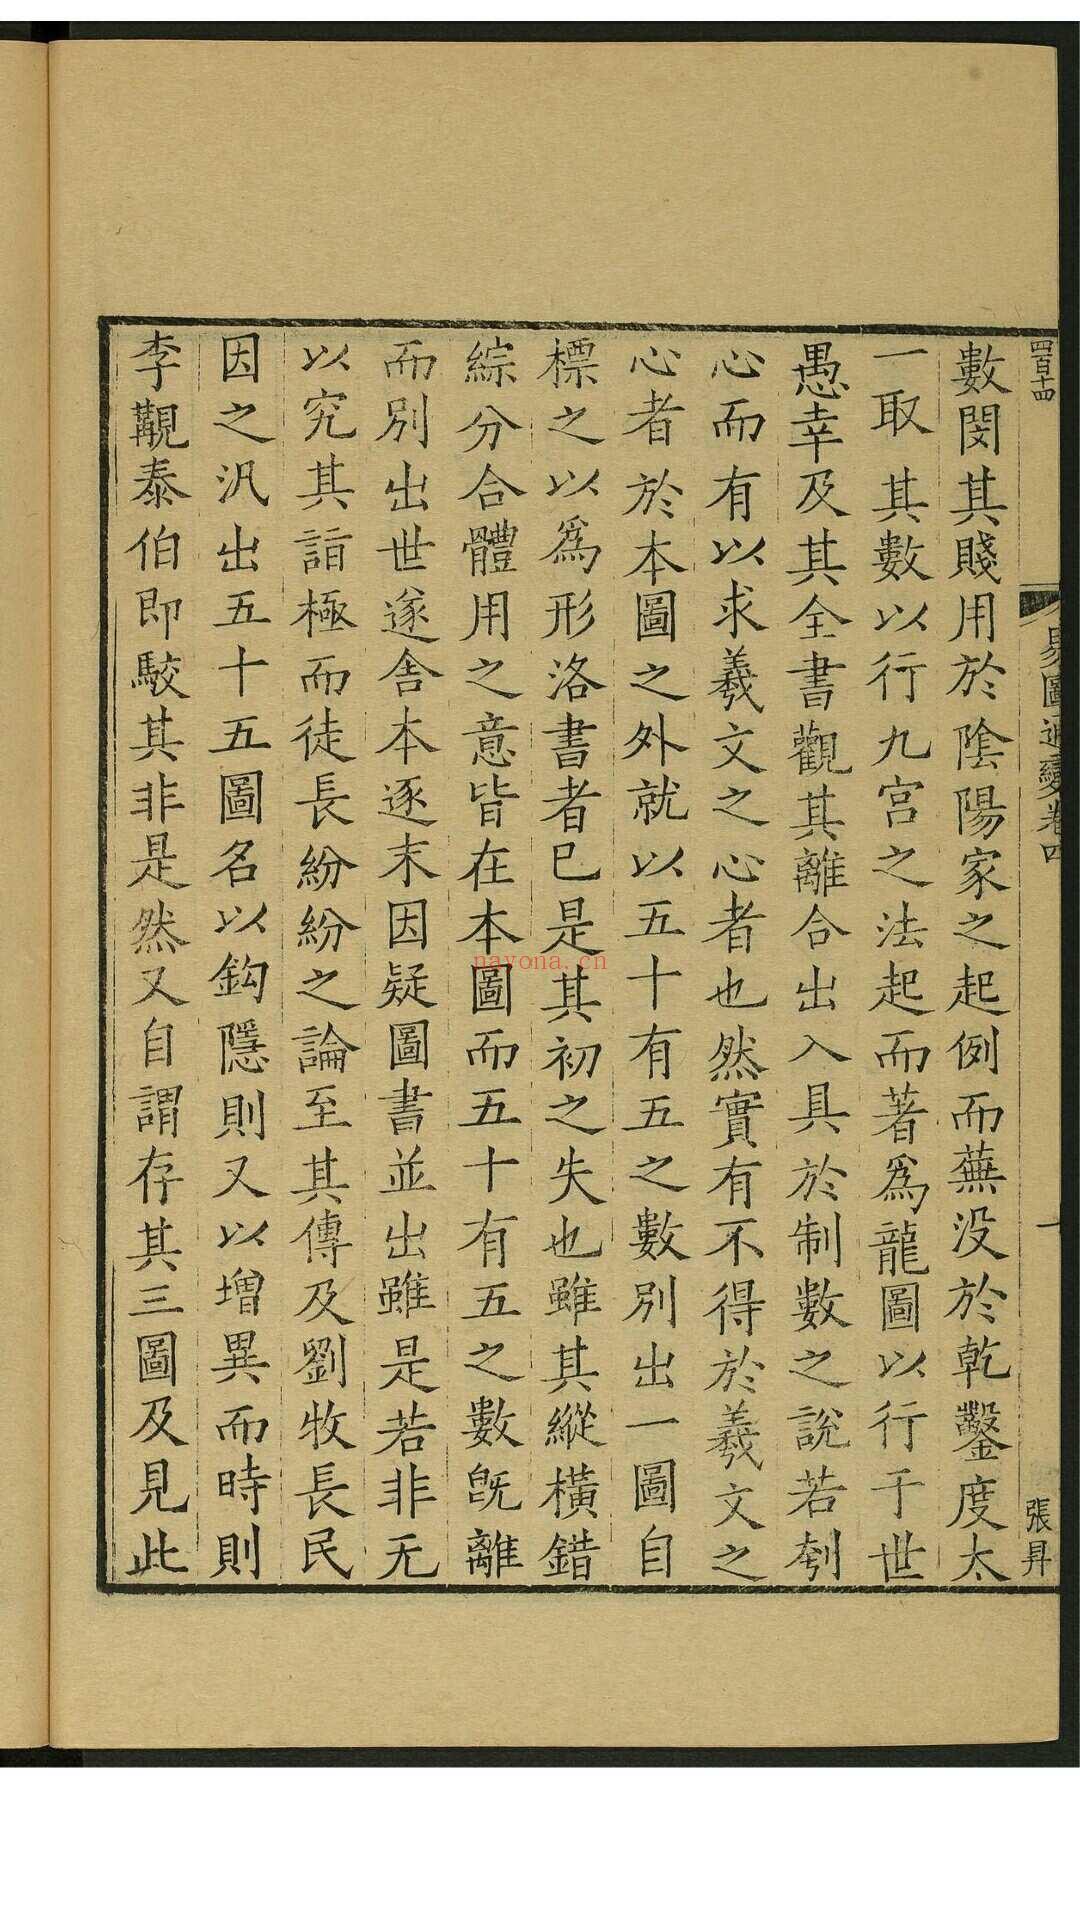 四百十四
易圖通變卷四
一
張昇
數閔其賤用於陰陽家之起例而蕪没於乾鑿度太
一取其數以行九宮之法起而著爲龍圖以行于世
愚幸及其全書觀其離合出入具於制數之說若刳
心而有以求羲文之心者也然實有不得於羲文之
心者於本圖之外就以五十有五之數別出一圖自
標之以爲形洛書者已是其初之失也雖其縱橫錯
綜分合體用之意皆在本圖而五十有五之數旣離
而別出世遂舍本逐末因疑圖書並出雖是若非无
以究其詣極而徒長紛紛之論至其傳及劉牧長民
因之汎出五十五圖名以鈎隱則又以增異而時則
李覯泰伯即駮其非是然又自謂存其三圖及見此
nayona.cn